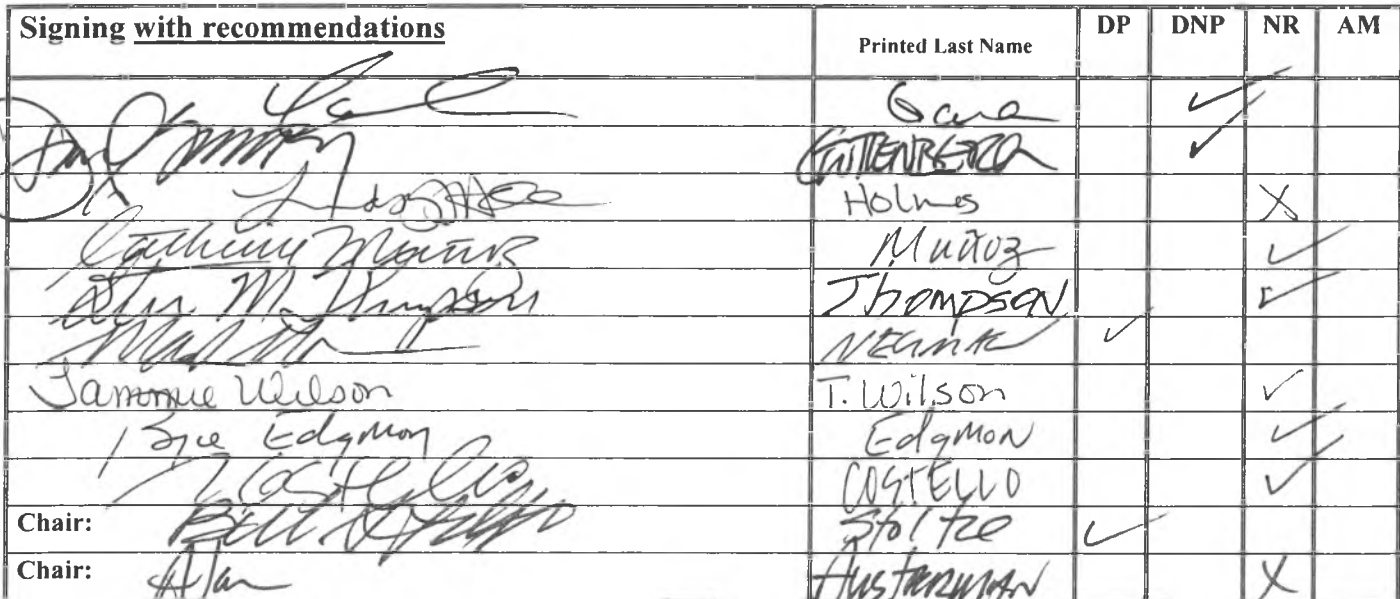 Signing with recommendations Printed Last Name DP DNP NR AM
Gara ✓
GUTTENBERG ✓
Holmes X
Catherine Munoz Muñoz ✓
M. Thompson Thompson ✓
NEUMAN ✓
Tammie Wilson T. Wilson ✓
Bryce Edgmon Edgmon ✓
Costello COSTELLO ✓
Chair: Bill Stoltze Stoltze ✓
Chair: Alan Austerman X